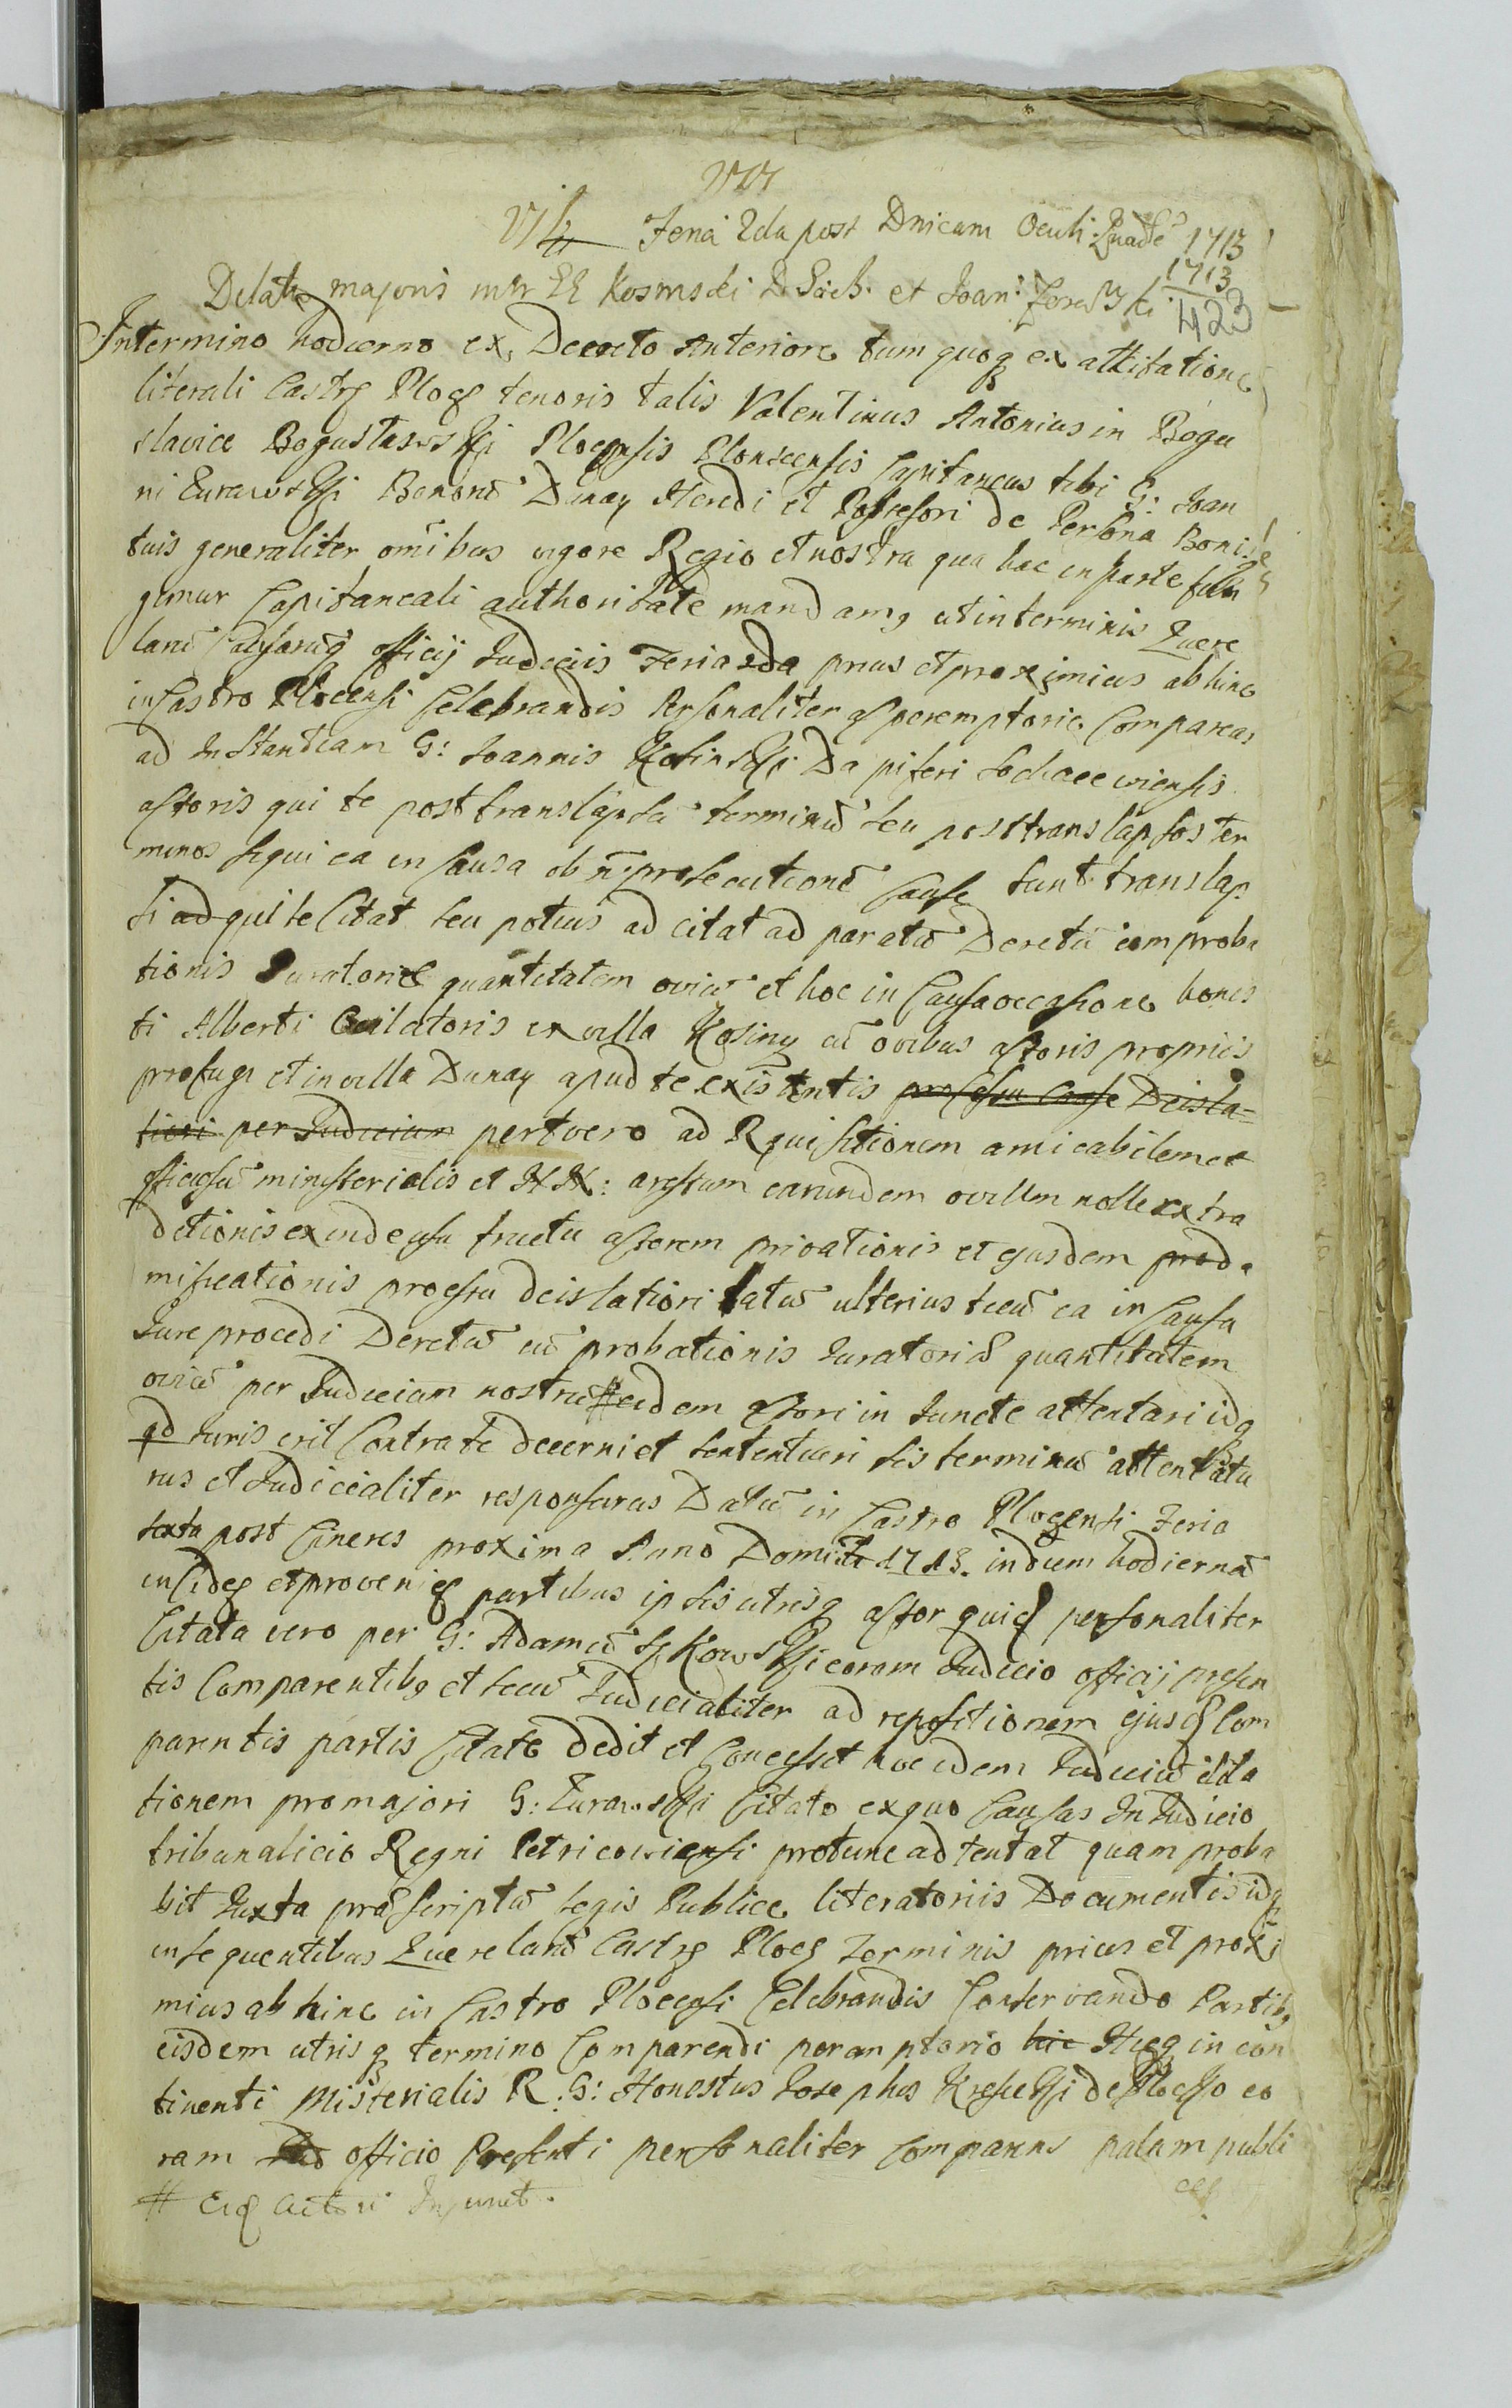 Feria 2da post Dnicam Oculi Quadē 1713
1713
Delatae majoris intr GG Kosinski D. Soch. et Joan: Zorawski 423
In termino hodierno ex Decreto Anteriore tum quoq ex attitatione
literali Castrq Plocq tenoris talis Valentinus Antonius in Bogu
slavice Bogustawski Plocensis Plonscensis Capitaneus tibi G: Joan
ni Zurawski Bonorū Dunay Heredi et Possessori de Persona Bonisq
tuis generaliter omibus vigore Regio et nostra qua hac in parte fun
gimur Capitaneali authoritate mandamq ut in terminis Quere
larū Causarūq officij Judiciis Feria 2da prius et proximius ab hinc
in Castro Plocensi Celebrandis Personaliter q peremptorie Compareas
ad Instantiam G: Joannis Kosinski Dapiferi Sochaceviensis
actoris qui te post translapsū terminū seu post translapsos ter
minos siqui ea in Causa ob n prosecutionē Cause sunt translap
si ad qui te Citat seu potius ad citat ad paratū Decretū comproba
tionis Juratoriae quantitatem oviū et hoc in Causa occasione hones
ti Alberti Ovilatoris ex villa Kosiny cū ovibus actoris propriis
profugi et in villa Dunay apud te existentis processu Cause Deisla=
tiori per Judicium per t vero ad Rquisitionem amicabilem et
officiosū ministerialis et NN: arestum earundem ovium nolle extra
ditionis exinde usu fructu actorem privationis et ejusdem prod
mificationis processu deislatiori latū ulterius tecū ea in Causa
Jure procedi Decretū cū probationis Juratoriae quantitatem
oviū per Judicium nostrū # eidem actori in Juncte attentari idq
qd Juris erit Contra te decerni et sententiari sis terminū attentatu
rus et Judicialiter responsurus Datū in Castro Plocensi Feria
sexta post Cineres proxima Anno Domi 1713. in diem hodiernā
incideq et proveniq partibus ipsis utrisq actor quiq personaliter
Citata vero per G: Adamū coram Judicio officij presen
tis Comparentibq et secū Judicialiter ad repositionem ejusq Com
parentis partis Citate dedit et Concessit hoc idem Judiciū dila
tionem pro majori G: Zurawski Citato ex quo Causas In Judicio
tribunalicio Regni Petricoviensi protunc ad tentat quam proba
bit Juxta praescriptū Legis Publice literatoriis Documentis idq
in sequentibus Querelarū Castrq Plocq Terminis prius et proxi
mius ab hinc in Castro Plocensi Celebrandis Conservando Partibq
eisdem utrisq termino Comparendi peremptorio hic in con
tinenti Misterialis R. G: Honestus Josephus de Plocko co
ram Jud officio Presenti personaliter comparens palam publi
# Eiq actori Injunct. ceq